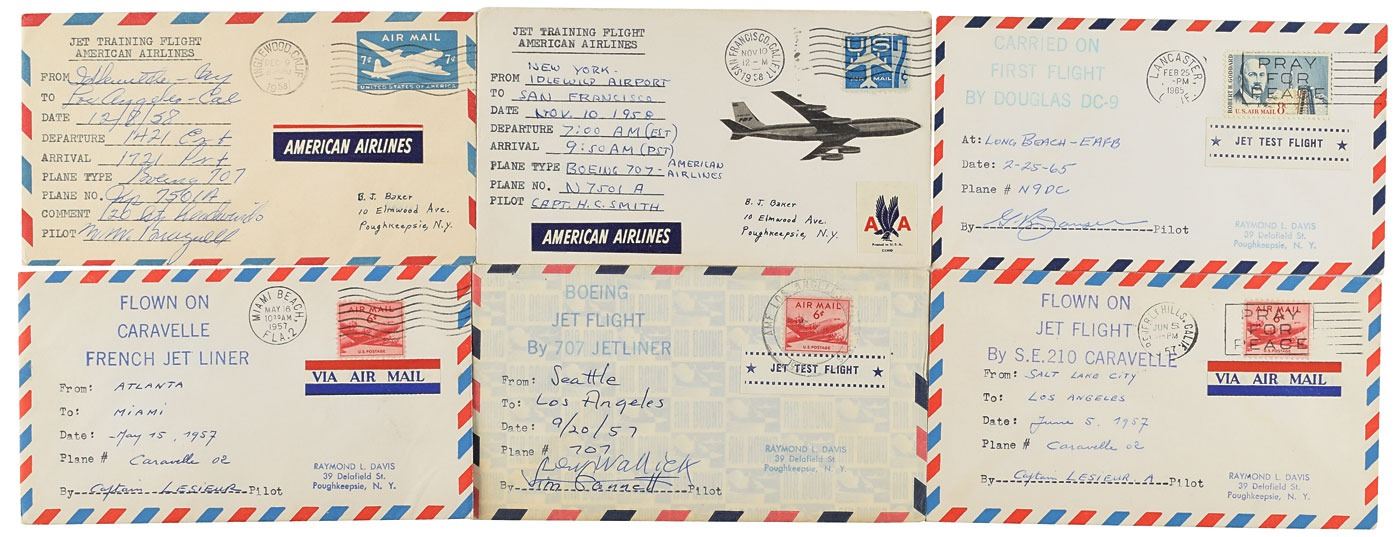 JET TRAINING FLIGHT
AMERICAN AIRLINES
FROM
TO Los Angeles - Cal
DATE 12/8/58
DEPARTURE 1421 Est
ARRIVAL 1721 Pst
PLANE TYPE Boeing 707
PLANE NO. 7501A
COMMENT
PILOT
INGLEWOOD, CALIF.
DEC 9
1958
AIR MAIL
7¢ 7¢
UNITED STATES OF AMERICA
AMERICAN AIRLINES
B. J. Baker
10 Elmwood Ave.
Poughkeepsie, N.Y.
JET TRAINING FLIGHT
AMERICAN AIRLINES
NEW YORK-
FROM IDLEWILD AIRPORT
TO SAN FRANCISCO
DATE NOV. 10, 1958
DEPARTURE 7:00 AM (EST)
ARRIVAL 9:50 AM (PST)
PLANE TYPE BOEING 707- AMERICAN AIRLINES
PLANE NO. N7501A
PILOT CAPT. H.C. SMITH
AMERICAN AIRLINES
SAN FRANCISCO, CALIF.
NOV 10
12-M
1958
US
7¢
B. J. Baker
10 Elmwood Ave.
Poughkeepsie, N.Y.
A A
CARRIED ON
FIRST FLIGHT
BY DOUGLAS DC-9
LANCASTER,
FEB 25
PM
1965
PRAY
FOR
PEACE
ROBERT H. GODDARD
U.S. AIR MAIL 8¢
★ JET TEST FLIGHT ★
At: LONG BEACH - EAFB
Date: 2-25-65
Plane # N9DC
By Pilot
RAYMOND L. DAVIS
39 Delafield St.
Poughkeepsie, N. Y.
FLOWN ON
CARAVELLE
FRENCH JET LINER
MIAMI BEACH,
MAY 16
AM
1957
FLA. 2
AIR MAIL
6¢
U.S. POSTAGE
VIA AIR MAIL
From: ATLANTA
To: MIAMI
Date: May 15, 1957
Plane # Caravelle 02
By Captain LESIEUR Pilot
RAYMOND L. DAVIS
39 Delafield St.
Poughkeepsie, N. Y.
BOEING
JET FLIGHT
By 707 JETLINER
AIR MAIL
6¢
U.S. POSTAGE
★ JET TEST FLIGHT ★
From: Seattle
To: Los Angeles
Date: 9/20/57
Plane # 707
Lew Wallick
By Jim Gannett Pilot
RAYMOND L. DAVIS
39 Delafield St.
Poughkeepsie, N. Y.
FLOWN ON
JET FLIGHT
By S.E.210 CARAVELLE
BEVERLY HILLS, CALIF.
JUN 5
PM
AIR MAIL
6¢
U.S. POSTAGE
PRAY
FOR
PEACE
VIA AIR MAIL
From: SALT LAKE CITY
To: LOS ANGELES
Date: June 5, 1957
Plane # Caravelle 02
By Captain LESIEUR A. Pilot
RAYMOND L. DAVIS
39 Delafield St.
Poughkeepsie, N. Y.